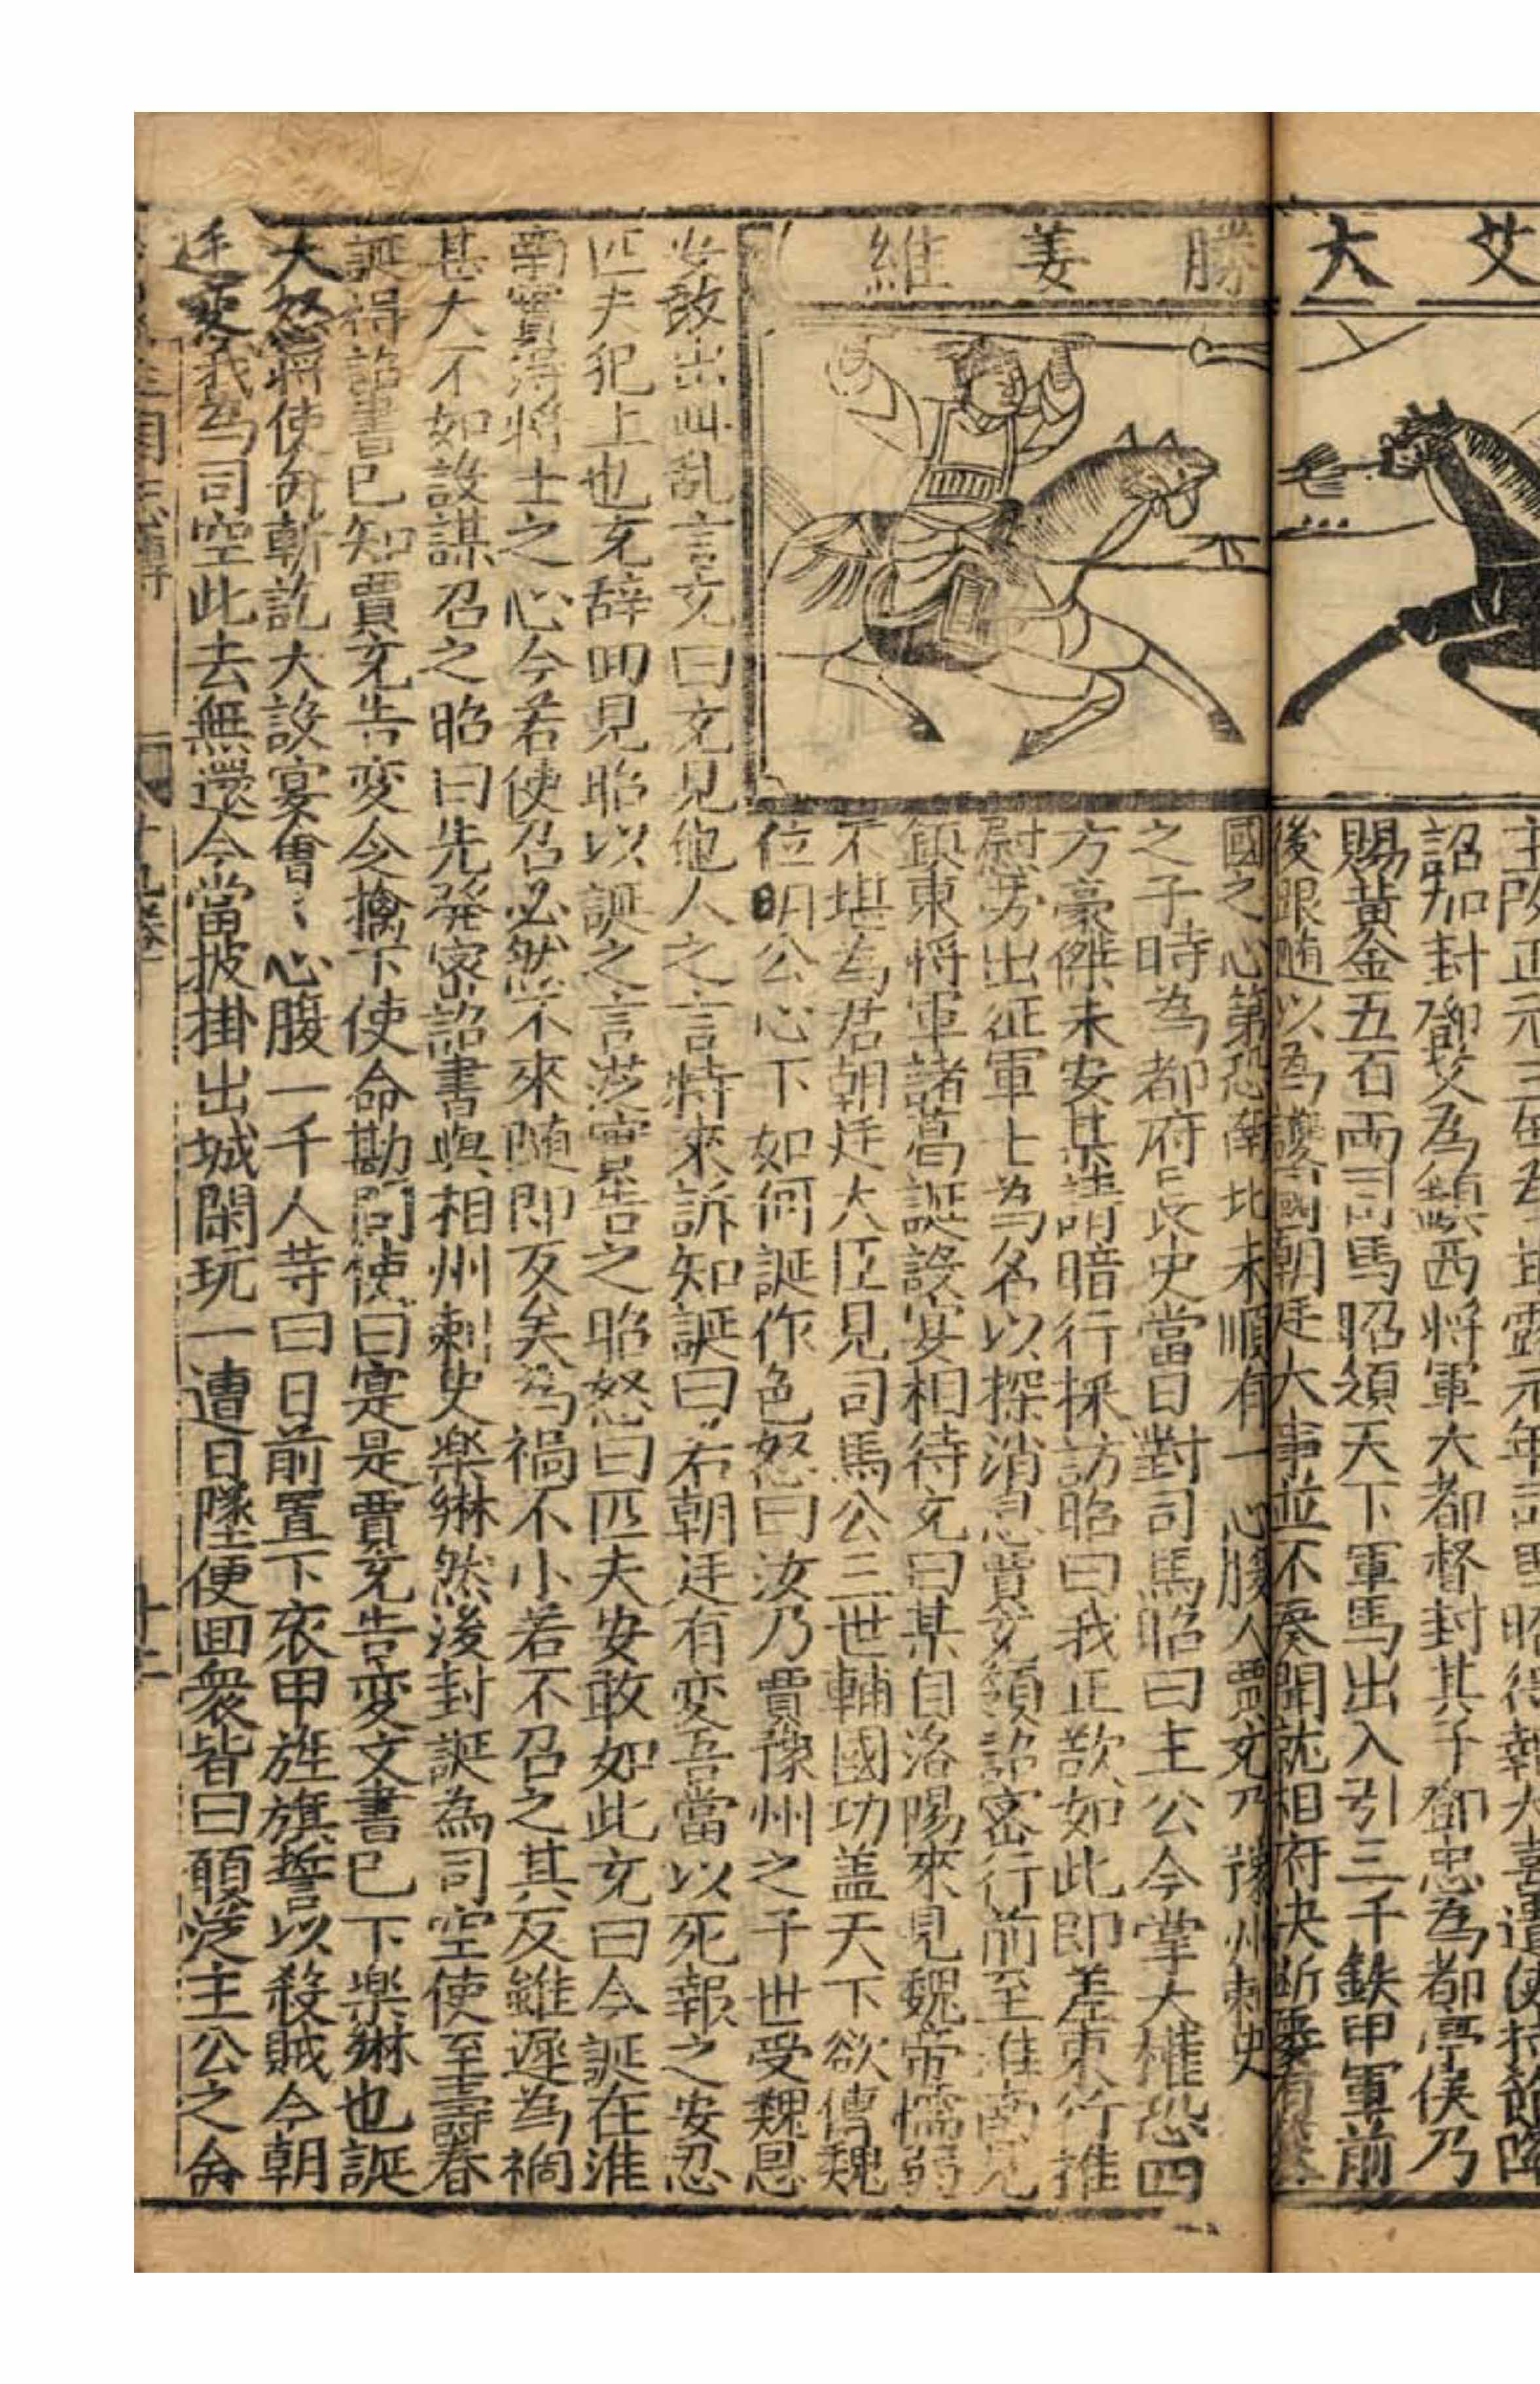 艾大
勝姜維
詔加封鄧艾為鎮西將軍大都督封其子鄧忠為都亭侯乃
賜黃金五百両司馬昭領天下軍馬出入引三千鉄甲軍前
後跟随以為護衛朝廷大事並不奏聞就相府決断
國之心第恐南北未順有一心腹人賈充乃豫州刺史
之子時為都府長史當日對司馬昭曰主公今掌大權恐四
方豪傑未安某請暗行採訪昭曰我正欲如此即差東行推
慰劳出征軍士為名以探消息賈充領詔密行前至淮南見
鎮東將軍諸葛誕設宴相待充曰某自洛陽來見魏帝懦弱
不堪為君朝廷大臣見司馬公三世輔國功盖天下欲傳魏
位明公心下如何誕作色怒曰汝乃賈豫州之子世受魏恩
安敢出此乱言充曰充見他人之言特來訴知誕曰若朝廷有変吾當以死報之安忍
匹夫犯上也充辞囬見昭以誕之言從實告之昭怒曰匹夫安敢如此充曰今誕在淮
南實得將士之心今若使召必然不來随即反矣為禍不小若不召之其反雖遲為禍
甚大不如設謀召之昭曰先發密詔書與相州刺史楽綝然後封誕為司空使至壽春
誕得詔書已知賈充告変令擒下使命勘問使曰寔是賈充告変文書已下楽綝也誕
大怒將使命斬訖大設宴會〻心腹一千人䓁曰日前置下衣甲旌旗誓以殺賊今朝
廷要我為司空此去無還今當披掛出城閑玩一遭日墜便囬衆皆曰願從主公之命